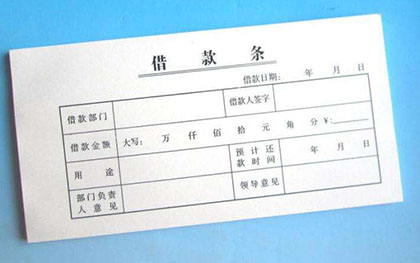 借款条
借款日期： 年 月 日
借款部门 借款人签字
借款金额 大写： 万 仟 佰 拾 元 角 分 ¥:
用途 预计还款时间 年 月 日
部门负责人意见 领导意见